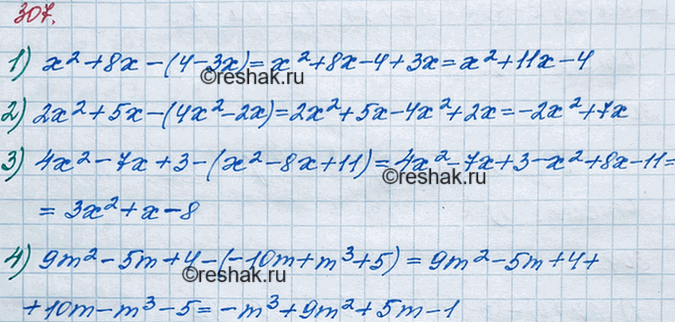 307.
1) x² + 8x - (4 - 3x) = x² + 8x - 4 + 3x = x² + 11x - 4
©reshak.ru
2) 2x² + 5x - (4x² - 2x) = 2x² + 5x - 4x² + 2x = -2x² + 7x
3) 4x² - 7x + 3 - (x² - 8x + 11) = 4x² - 7x + 3 - x² + 8x - 11 =
©reshak.ru
= 3x² + x - 8
4) 9m² - 5m + 4 - (-10m + m³ + 5) = 9m² - 5m + 4 +
©reshak.ru
+ 10m - m³ - 5 = -m³ + 9m² + 5m - 1